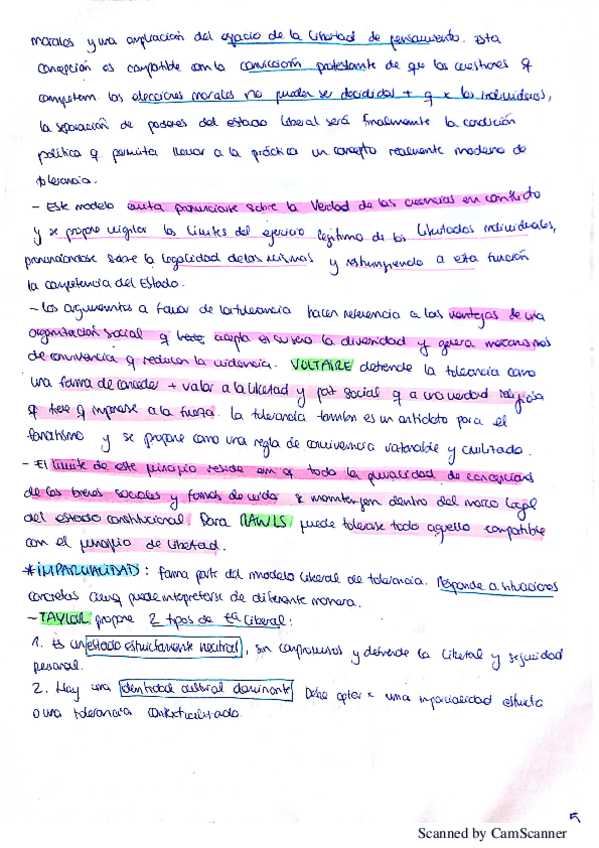 morales y una ampliación del espacio de la libertad de pensamiento. Esta
concepción es compatible con la convicción protestante de que las cuestiones q
competen las elecciones morales no pueden ser decididas + q x los individuos,
la separación de poderes del estado liberal será finalmente la condición
política q permita llevar a la práctica un concepto realmente moderno de
tolerancia.
- Este modelo evita pronunciarse sobre la verdad de las creencias en conflicto
y se propone vigilar los límites del ejercicio legítimo de las libertades individuales,
pronunciándose sobre la legalidad de las mismas y restringiendo a esta función
la competencia del Estado.
- Los argumentos a favor de la tolerancia hacen referencia a las ventajas de una
organización social q acepta en su seno la diversidad y genera mecanismos
de convivencia q reducen la violencia. VOLTAIRE defiende la tolerancia como
una forma de conceder + valor a la libertad y paz social q a una verdad religiosa
q tiene q imponerse a la fuerza. La tolerancia también es un antídoto para el
fanatismo y se propone como una regla de convivencia razonable y civilizada.
- El límite de este principio reside en q toda la pluralidad de concepciones
de los bienes sociales y formas de vida se mantengan dentro del marco legal
del estado constitucional. Para RAWLS puede tolerarse todo aquello compatible
con el principio de libertad.
* IMPARCIALIDAD: forma parte del modelo liberal de tolerancia. Responde a situaciones
concretas puede interpretarse de diferente manera.
- TAYLOR propone 2 tipos de tª liberal:
1. Es un estado estrictamente neutral, sin compromisos y defiende la libertad y seguridad
personal.
2. Hay una identidad cultural dominante. Debe optar x una imparcialidad estricta
o una tolerancia contextualizada.
5
Scanned by CamScanner